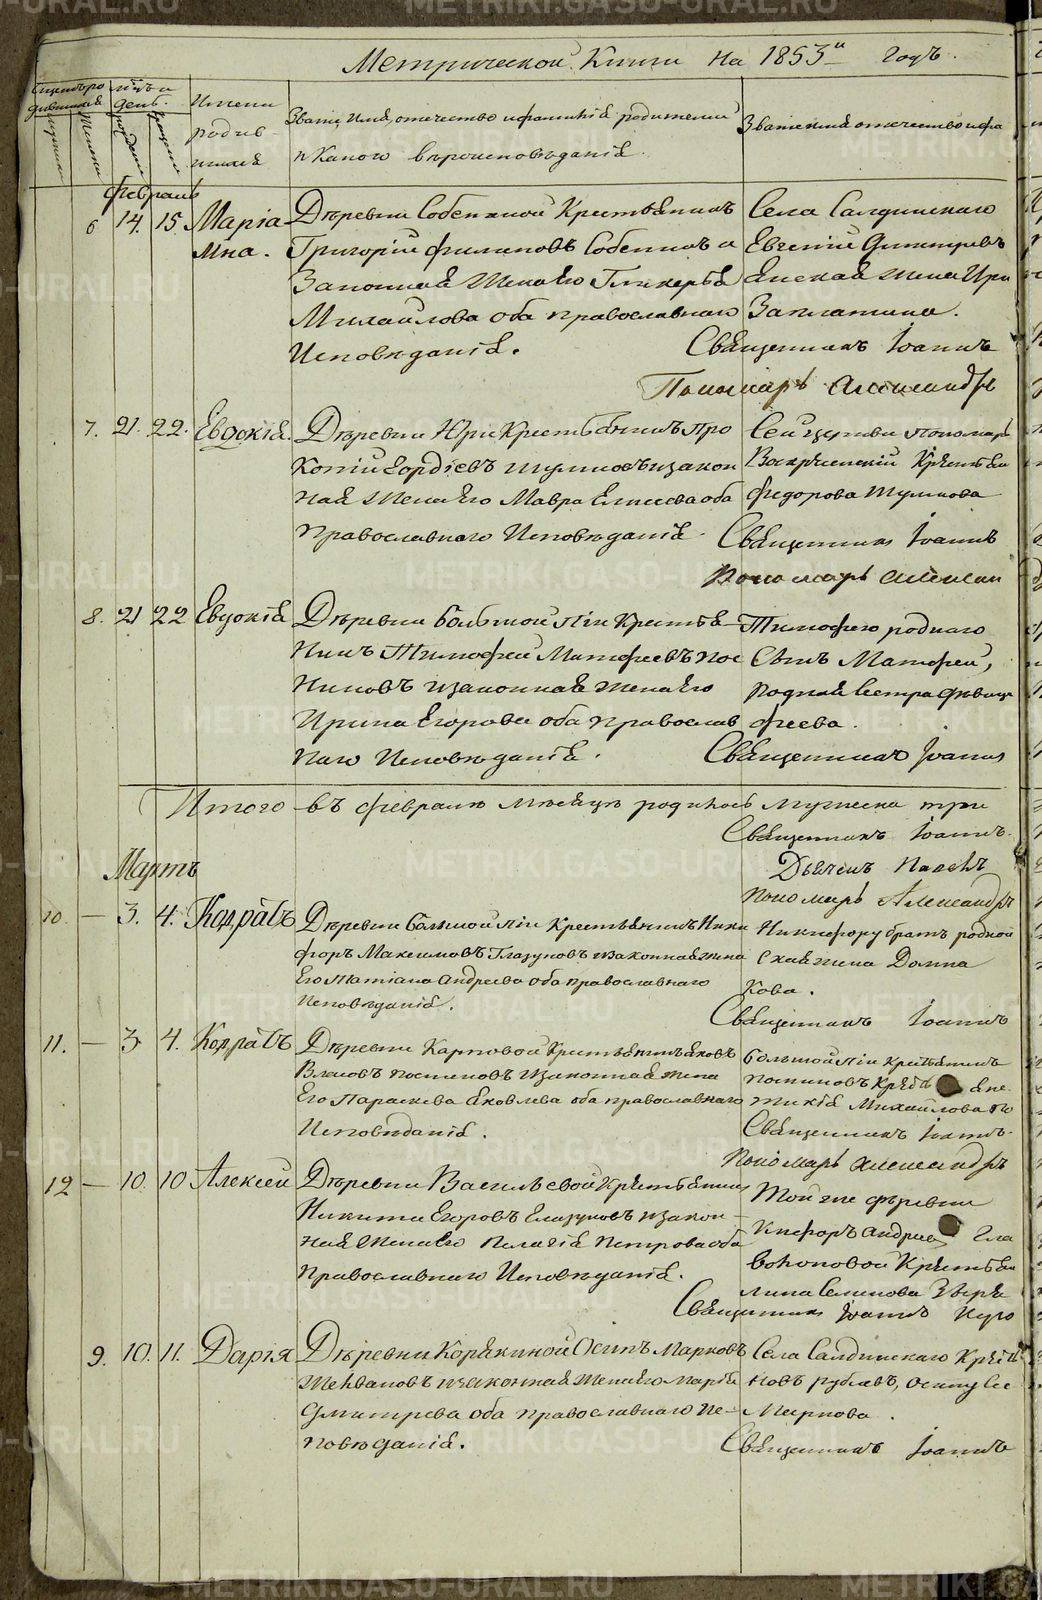 Метрической Книги на 1853й Годъ.
Счетъ ро дившихся
Мѣсяцъ и день.
Имена родив шихся
Званіе, имя, отчество и фамилія родителей и Какого вѣроисповѣданія.
Званіе имя отчество и фа
Февраль
6 14. 15 Маріа мна.
Дѣревни Собениной Крестьянинъ
Григорій Филиповъ Собенинъ и
Законная Жена Его Гликерья
Михайлова оба православнаго
Исповѣданія.
Села Салдинскаго
Евгеній Димитріевъ
Жена Ири
Заплатина.
Священникъ Іоаннъ
Пономарь Александръ
7. 21. 22. Евдокія.
Дѣревни Крестьянинъ Про
копій Гордіевъ и закон
ная Жена Его Мавра Елисеева оба
Православнаго Исповѣданія.
Сей церкви пономарь
Воскресенскій Крестьян
Федорова
Священникъ Іоаннъ
Пономарь Алексан
8. 21 22 Евдокія
Дѣревни Большой Крестья
нинъ Тимофей Матфеевъ Пос
никовъ и законная жена Его
Ирина Егорова оба православ
наго Исповѣданія.
Тимофею роднаго
Сынъ Матфей,
родная Сестра дѣвица
феева.
Священникъ Іоаннъ
Итого въ Февралѣ мѣсяцѣ родилось мужеска три
Священникъ Іоаннъ.
Дьячекъ Павелъ
Пономарь Александръ
Мартъ
10. — 3. 4. Кодратъ
Дѣревни Большой Крестьянинъ Ники
форъ Максимовъ Глазуновъ и законная жена
Его Татіана Андреева оба православнаго
Исповѣданія.
Никифору братъ родной
жена Домна
кова.
Священникъ Іоаннъ
11. — 3 4. Кодратъ
Дѣревни Карповой Крестьянинъ Яковъ
Власовъ Посниковъ и законная жена
Его Параскева Яковлева оба православнаго
Исповѣданія.
Большой Крестьянинъ
Посниковъ
Михайлова По
Священникъ Іоаннъ.
Пономарь Александръ
12 — 10. 10 Алексѣй
Дѣревни Васильевой Крестьянинъ
Никита Егоровъ Глазуновъ и закон
ная Жена Его Пелагія Петрова оба
Православнаго Исповѣданія.
Той же дѣревни
Кифоръ Андрее Гла
Крестьян
Семенова Звѣре
Священникъ Іоаннъ
9. 10. 11. Дарья
Дѣревни Корякиной Осипъ Марковъ
и законная Жена Его Марья
Дмитрева оба православнаго Ис
повѣданія.
Села Салдинскаго
новъ Рублевъ, Осипу Се
Маркова.
Священникъ Іоаннъ
METRIKI.GASO-URAL.RU